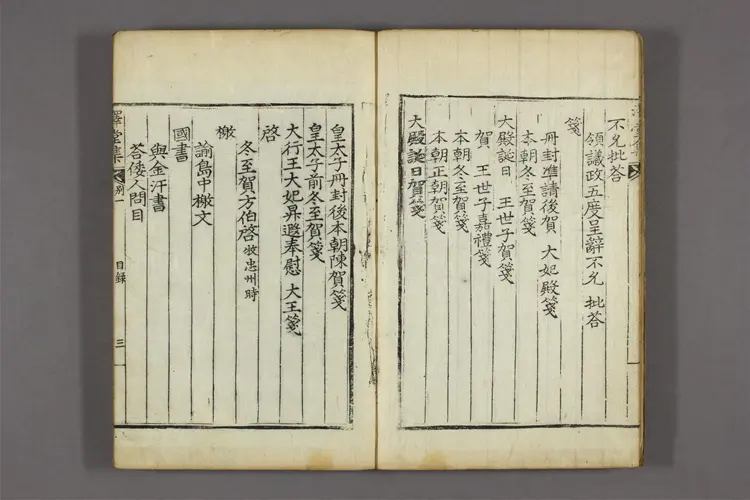 不允批答
領議政五度呈辭不允 批答
箋
冊封準請後賀 大妃殿箋
本朝冬至賀箋
大殿誕日 王世子賀箋
賀 王世子嘉禮箋
本朝冬至賀箋
本朝正朝賀箋
大殿誕日賀箋
皇太子冊封後本朝陳賀箋
皇太子前冬至賀箋
大行王大妃昇遐奉慰 大王箋
啓
冬至賀方伯啓 牧忠州時
檄
諭島中檄文
國書
與金汗書
答倭人問目
澤堂集 別一 目錄 三